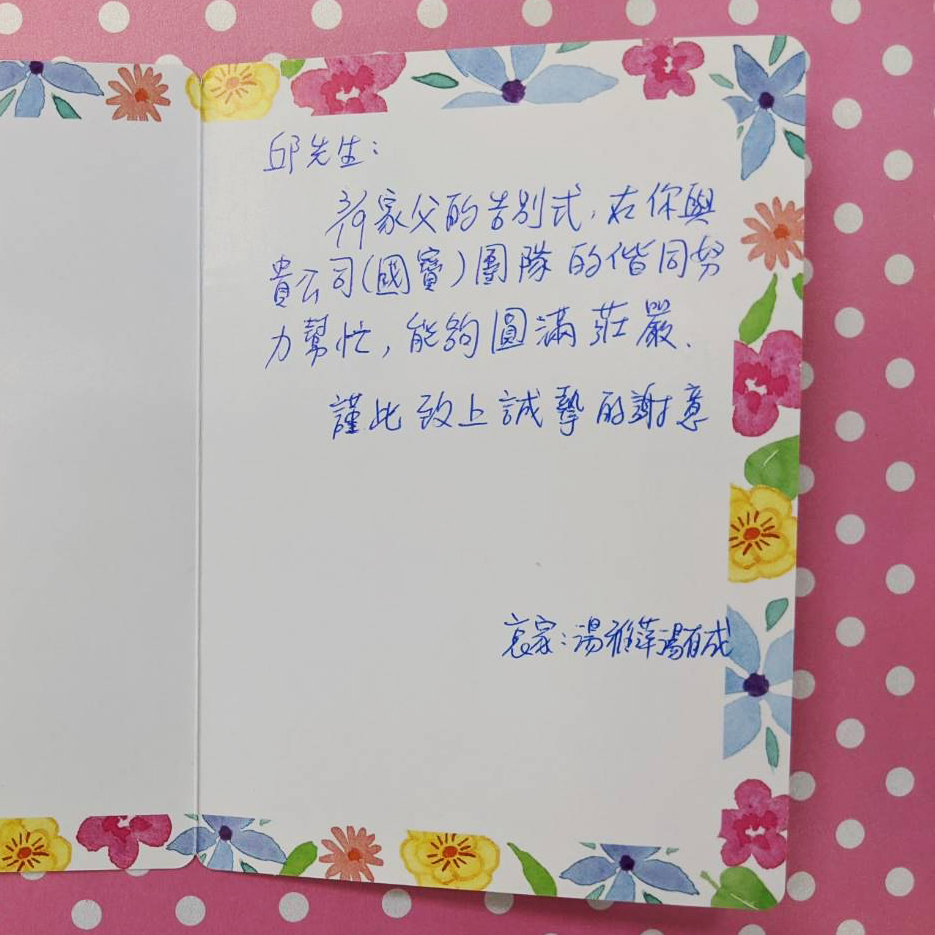 邱先生：
於家父的告別式，在你與
貴公司(國寶)團隊的偕同努
力幫忙，能夠圓滿莊嚴．
謹此致上誠摯的謝意
哀家：湯雅萍湯有成